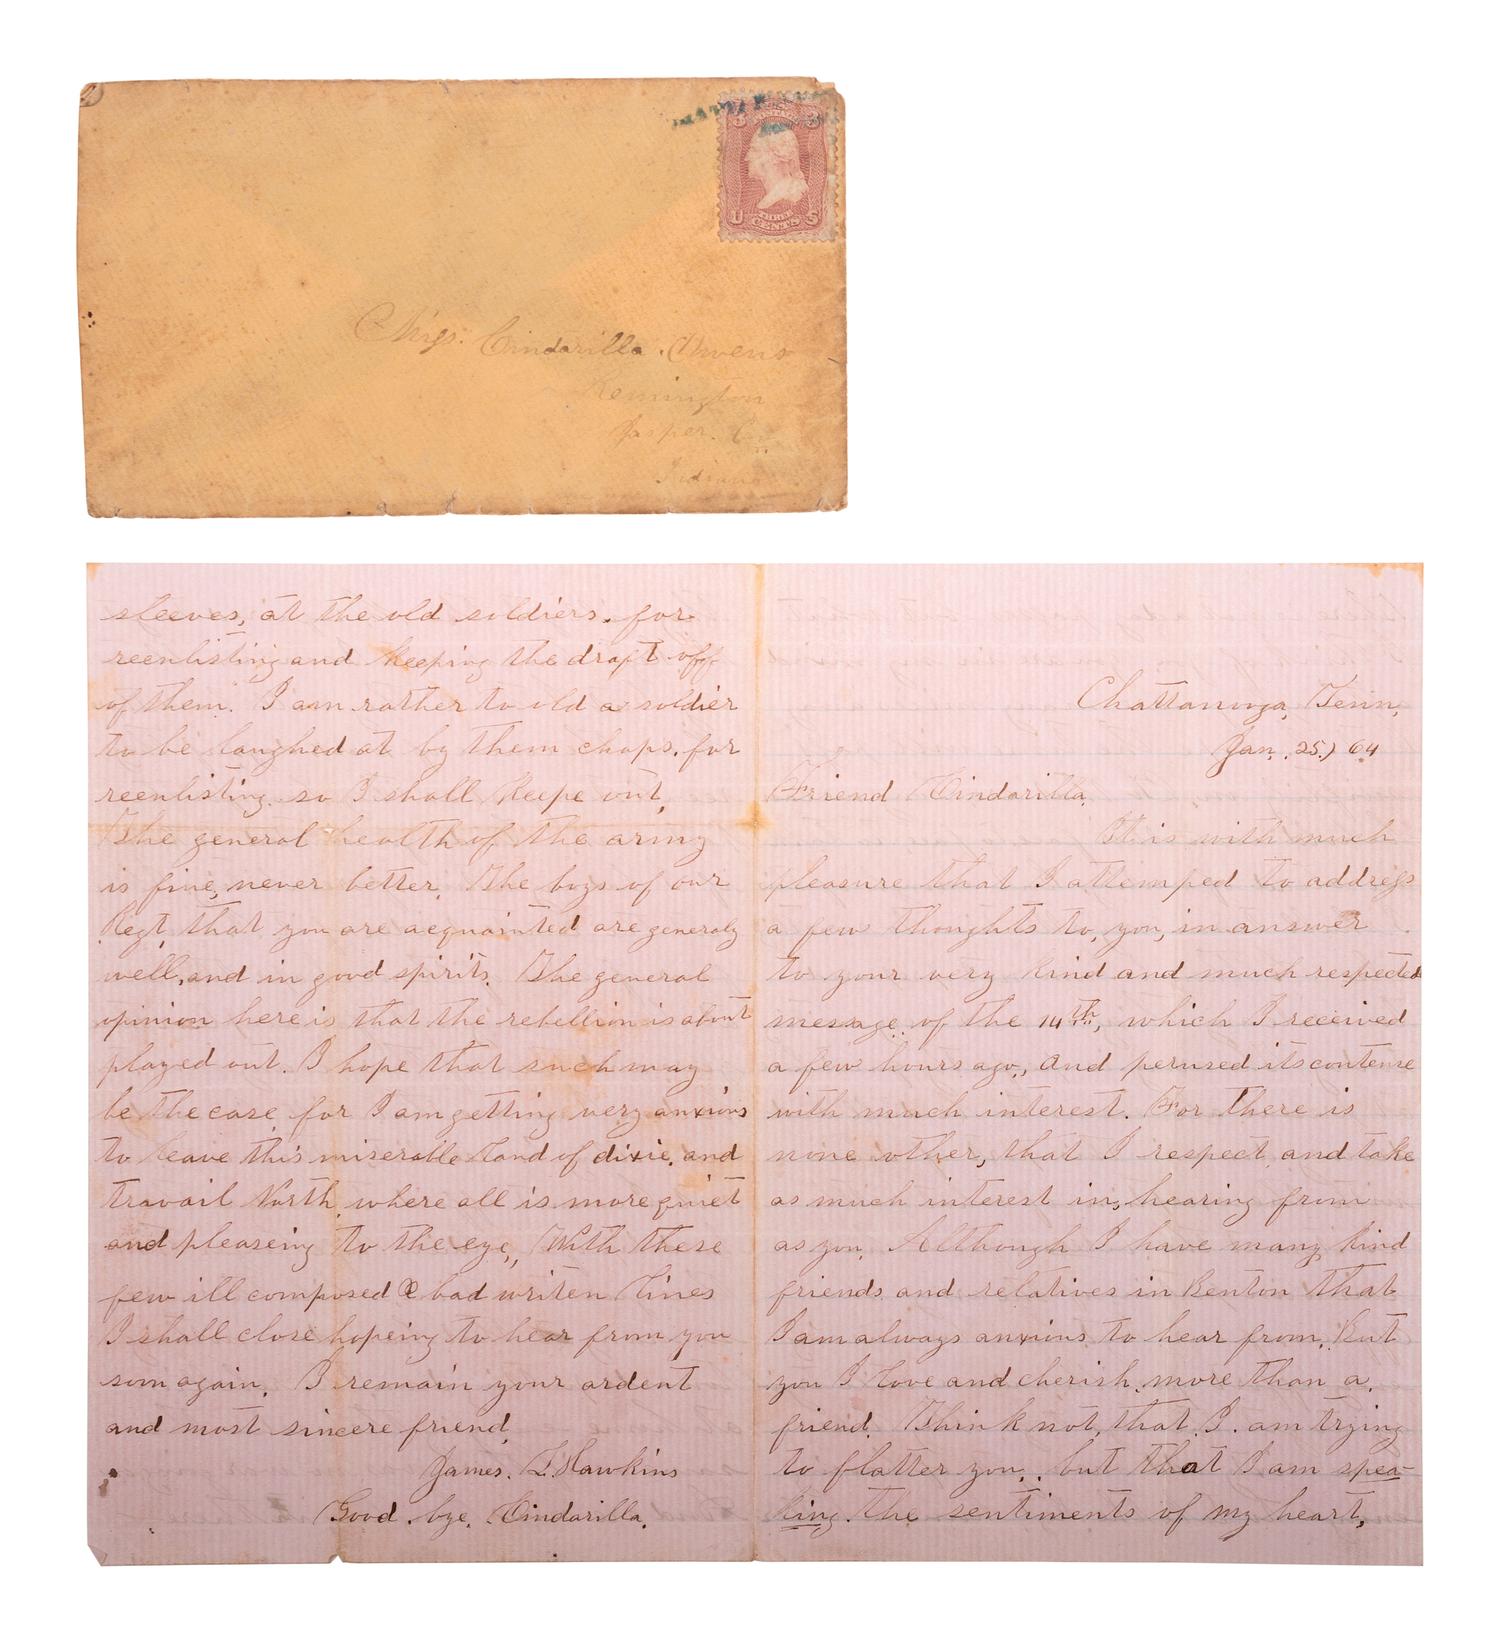 3 POSTAGE 3
U THREE CENTS S
Miss. Cindarilla. Owens
Remington
Jasper. Co.
Indiana
sleeves, at the old soldiers. for
reenlisting and keeping the draft off
of them. I am rather to old a soldier
to be laughed at by them chaps. for
reenlisting. so I shall Keepe out,
The general health of the army
is fine, never better. The boys of our
Regt, that you are acquainted are generaly
well, and in good spirits. The general
opinion here is that the rebellion is about
played out. I hope that such may
be the case, for I am getting very anxious
to leave this miserable Land of dixie, and
travail North, where all is more quiet
and pleaseing to the eye,, With these
few ill composed & bad writen Lines
I shall close hopeing to hear from you
soon again. I remain your ardent
and most sincere friend,
James. L. Hawkins
Good. bye. Cindarilla.
Chattanooga, Tenn,
Jan. 25.) 64
Friend Cindarilla,
It is with much
pleasure that I attemped to address
a few thoughts to, you, in answer
to your very kind and much respected
message of the 14th, which I received
a few hours ago, and perused its contense
with much interest. For there is
none other, that I respect, and take
as much interest in, hearing from
as you. Although I have many kind
friends and relatives in Benton that
I am always anxious to hear from. But
you I Love and cherish. more than a.
friend. Think not, that. I. am trying
to flatter you,. but that I am spea-
king. the sentiments of my heart,